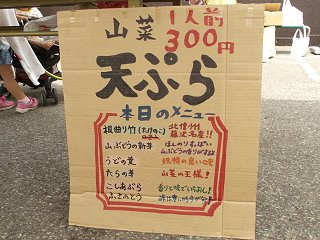 山菜 1人前
300円
天ぷら
本日のメニュー
根曲り竹(たけのこ)
北信州
山ぶどうの新芽
ほんのりすっぱい
山ぶどうの香りがするよ
うどの芽
独特の良い味
たらの芽
山菜の王様!
こしあぶら
香りと味でいちおし!
ふきのとう